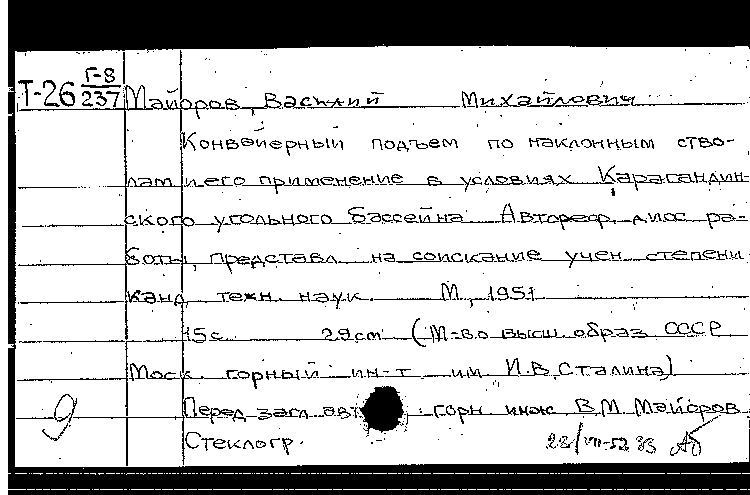 Т-26 Г-8/237 Майоров, Василий Михайлович
Конвейерный подъем по наклонным ство-
лам и его применение в условиях Карагандин-
ского угольного бассейна. Автореф. дисс. ра-
боты, представл. на соискание учен. степени
канд. техн. наук. М., 1951
15 с. 29 cm (М-во высш. образ. СССР
Моск. горный ин-т им. И.В. Сталина)
9 Перед загл. авт. горн. инж. В.М. Майоров
Стеклогр. 28/VII-52